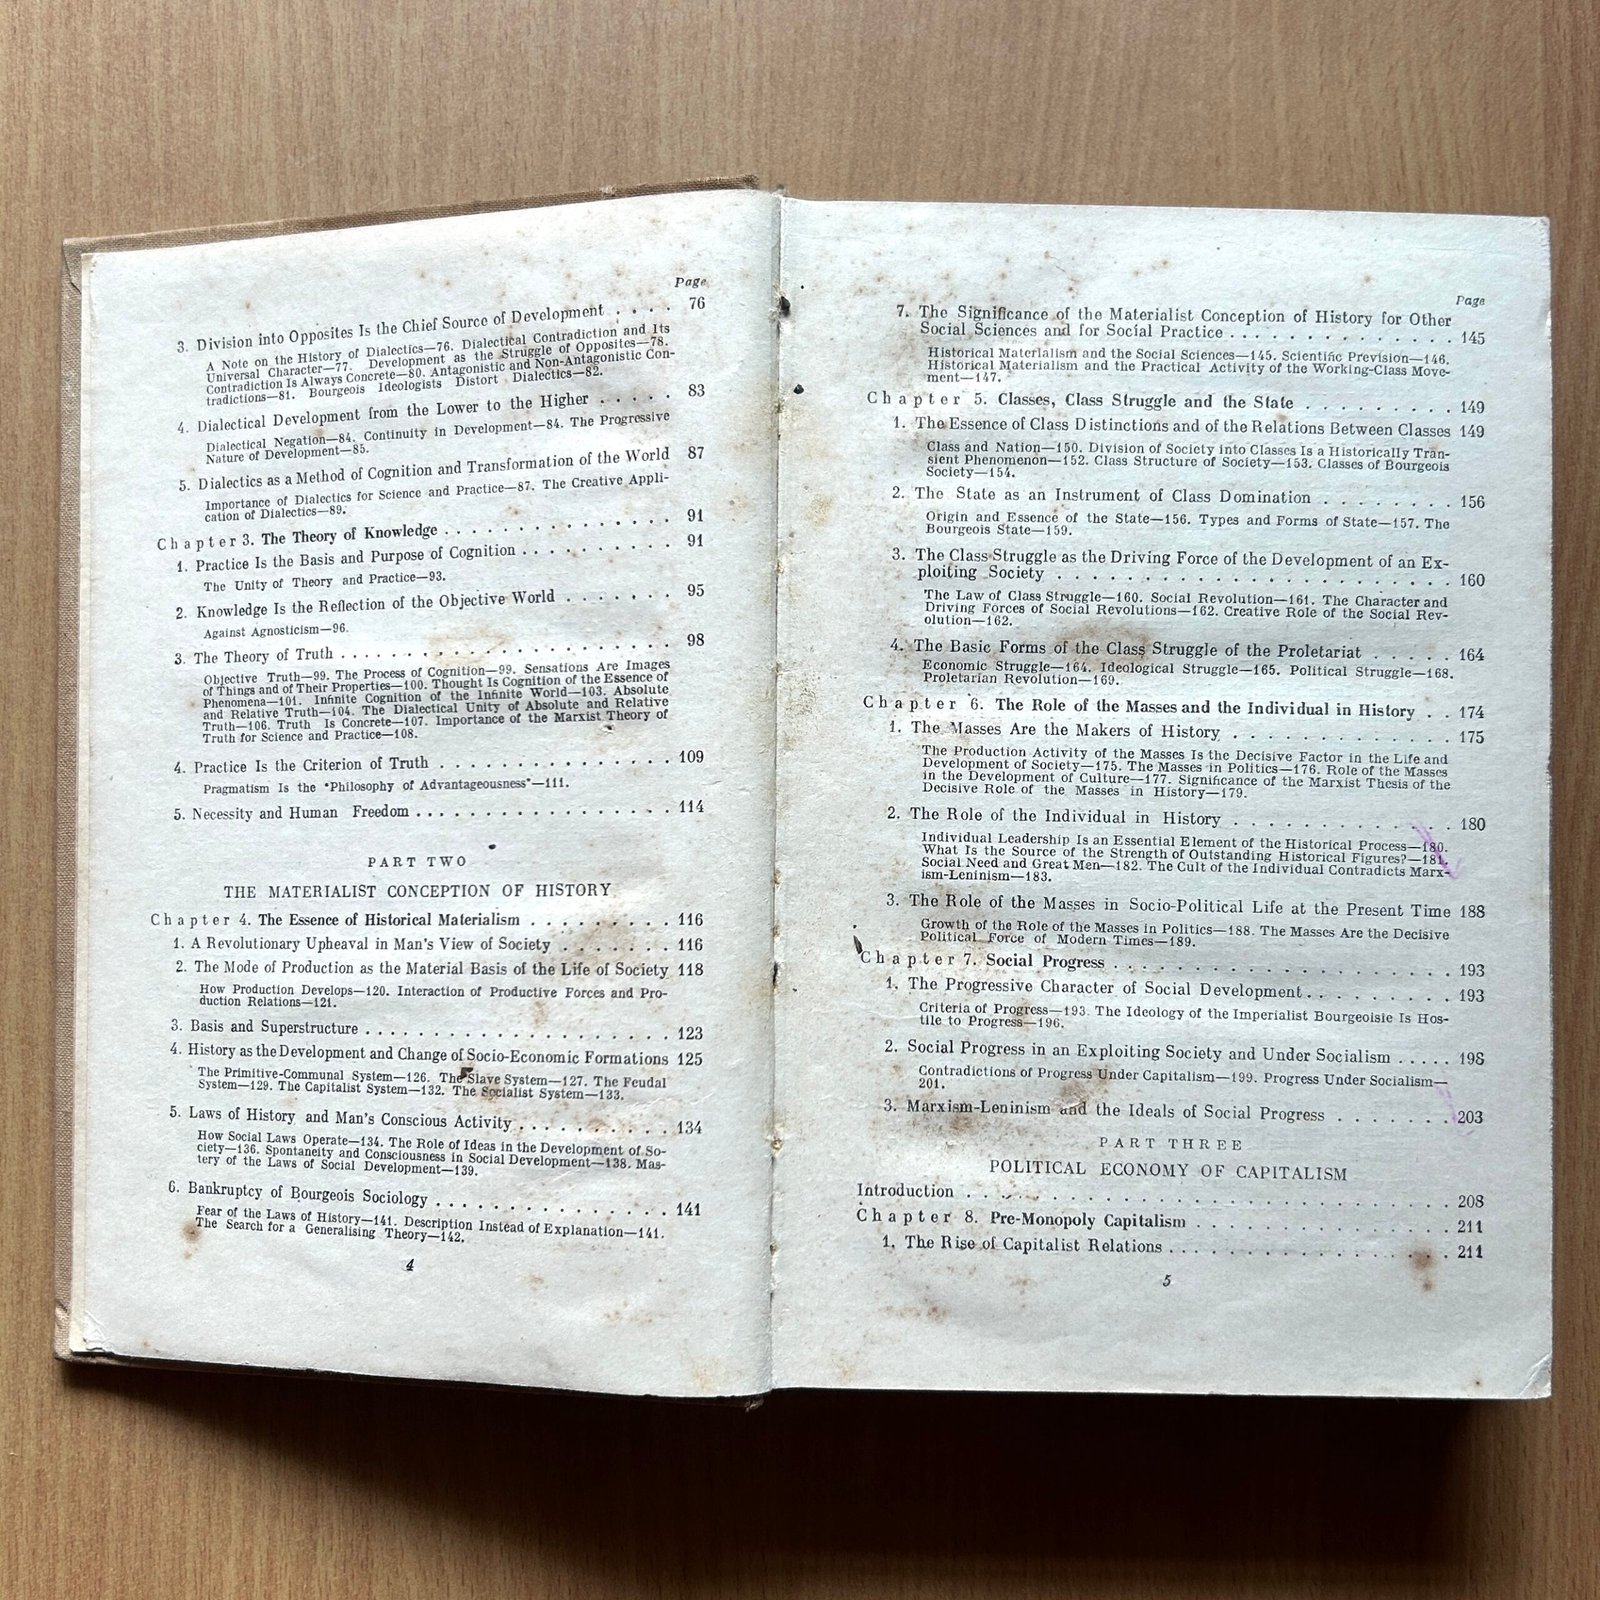 Page
3. Division into Opposites Is the Chief Source of Development . . . . 76
A Note on the History of Dialectics—76. Dialectical Contradiction and Its
Universal Character—77. Development as the Struggle of Opposites—78.
Contradiction Is Always Concrete—80. Antagonistic and Non-Antagonistic Con-
tradictions—81. Bourgeois Ideologists Distort Dialectics—82.
4. Dialectical Development from the Lower to the Higher . . . . . 83
Dialectical Negation—84. Continuity in Development—84. The Progressive
Nature of Development—85.
5. Dialectics as a Method of Cognition and Transformation of the World 87
Importance of Dialectics for Science and Practice—87. The Creative Appli-
cation of Dialectics—89.
Chapter 3. The Theory of Knowledge . . . . . . . . . . . . . . . 91
1. Practice Is the Basis and Purpose of Cognition . . . . . . . . . . 91
The Unity of Theory and Practice—93.
2. Knowledge Is the Reflection of the Objective World . . . . . . . 95
Against Agnosticism—96.
3. The Theory of Truth . . . . . . . . . . . . . . . . . . . . . . 98
Objective Truth—99. The Process of Cognition—99. Sensations Are Images
of Things and of Their Properties—100. Thought Is Cognition of the Essence of
Phenomena—101. Infinite Cognition of the Infinite World—103. Absolute
and Relative Truth—104. The Dialectical Unity of Absolute and Relative
Truth—106. Truth Is Concrete—107. Importance of the Marxist Theory of
Truth for Science and Practice—108.
4. Practice Is the Criterion of Truth . . . . . . . . . . . . . . . 109
Pragmatism Is the "Philosophy of Advantageousness"—111.
5. Necessity and Human Freedom . . . . . . . . . . . . . . . . . 114
PART TWO
THE MATERIALIST CONCEPTION OF HISTORY
Chapter 4. The Essence of Historical Materialism . . . . . . . . . 116
1. A Revolutionary Upheaval in Man's View of Society . . . . . . . 116
2. The Mode of Production as the Material Basis of the Life of Society 118
How Production Develops—120. Interaction of Productive Forces and Pro-
duction Relations—121.
3. Basis and Superstructure . . . . . . . . . . . . . . . . . . . . 123
4. History as the Development and Change of Socio-Economic Formations 125
The Primitive-Communal System—126. The Slave System—127. The Feudal
System—129. The Capitalist System—132. The Socialist System—133.
5. Laws of History and Man's Conscious Activity . . . . . . . . . . 134
How Social Laws Operate—134. The Role of Ideas in the Development of So-
ciety—136. Spontaneity and Consciousness in Social Development—138. Mas-
tery of the Laws of Social Development—139.
6. Bankruptcy of Bourgeois Sociology . . . . . . . . . . . . . . . 141
Fear of the Laws of History—141. Description Instead of Explanation—141.
The Search for a Generalising Theory—142.
4
Page
7. The Significance of the Materialist Conception of History for Other
Social Sciences and for Social Practice . . . . . . . . . . . . . . 145
Historical Materialism and the Social Sciences—145. Scientific Prevision—146.
Historical Materialism and the Practical Activity of the Working-Class Move-
ment—147.
Chapter 5. Classes, Class Struggle and the State . . . . . . . . . 149
1. The Essence of Class Distinctions and of the Relations Between Classes 149
Class and Nation—150. Division of Society into Classes Is a Historically Tran-
sient Phenomenon—152. Class Structure of Society—153. Classes of Bourgeois
Society—154.
2. The State as an Instrument of Class Domination . . . . . . . . 156
Origin and Essence of the State—156. Types and Forms of State—157. The
Bourgeois State—159.
3. The Class Struggle as the Driving Force of the Development of an Ex-
ploiting Society . . . . . . . . . . . . . . . . . . . . . . . . 160
The Law of Class Struggle—160. Social Revolution—161. The Character and
Driving Forces of Social Revolutions—162. Creative Role of the Social Rev-
olution—162.
4. The Basic Forms of the Class Struggle of the Proletariat . . . . . 164
Economic Struggle—164. Ideological Struggle—165. Political Struggle—168.
Proletarian Revolution—169.
Chapter 6. The Role of the Masses and the Individual in History . . 174
1. The Masses Are the Makers of History . . . . . . . . . . . . . 175
The Production Activity of the Masses Is the Decisive Factor in the Life and
Development of Society—175. The Masses in Politics—176. Role of the Masses
in the Development of Culture—177. Significance of the Marxist Thesis of the
Decisive Role of the Masses in History—179.
2. The Role of the Individual in History . . . . . . . . . . . . . 180
Individual Leadership Is an Essential Element of the Historical Process—180.
What Is the Source of the Strength of Outstanding Historical Figures?—181.
Social Need and Great Men—182. The Cult of the Individual Contradicts Marx-
ism-Leninism—183.
3. The Role of the Masses in Socio-Political Life at the Present Time 188
Growth of the Role of the Masses in Politics—188. The Masses Are the Decisive
Political Force of Modern Times—189.
Chapter 7. Social Progress . . . . . . . . . . . . . . . . . . . . 193
1. The Progressive Character of Social Development . . . . . . . . . 193
Criteria of Progress—193. The Ideology of the Imperialist Bourgeoisie Is Hos-
tile to Progress—196.
2. Social Progress in an Exploiting Society and Under Socialism . . . . . 198
Contradictions of Progress Under Capitalism—199. Progress Under Socialism—
201.
3. Marxism-Leninism and the Ideals of Social Progress . . . . . . . 203
PART THREE
POLITICAL ECONOMY OF CAPITALISM
Introduction . . . . . . . . . . . . . . . . . . . . . . . . . . . . 208
Chapter 8. Pre-Monopoly Capitalism . . . . . . . . . . . . . . . 211
1. The Rise of Capitalist Relations . . . . . . . . . . . . . . . . . 211
5